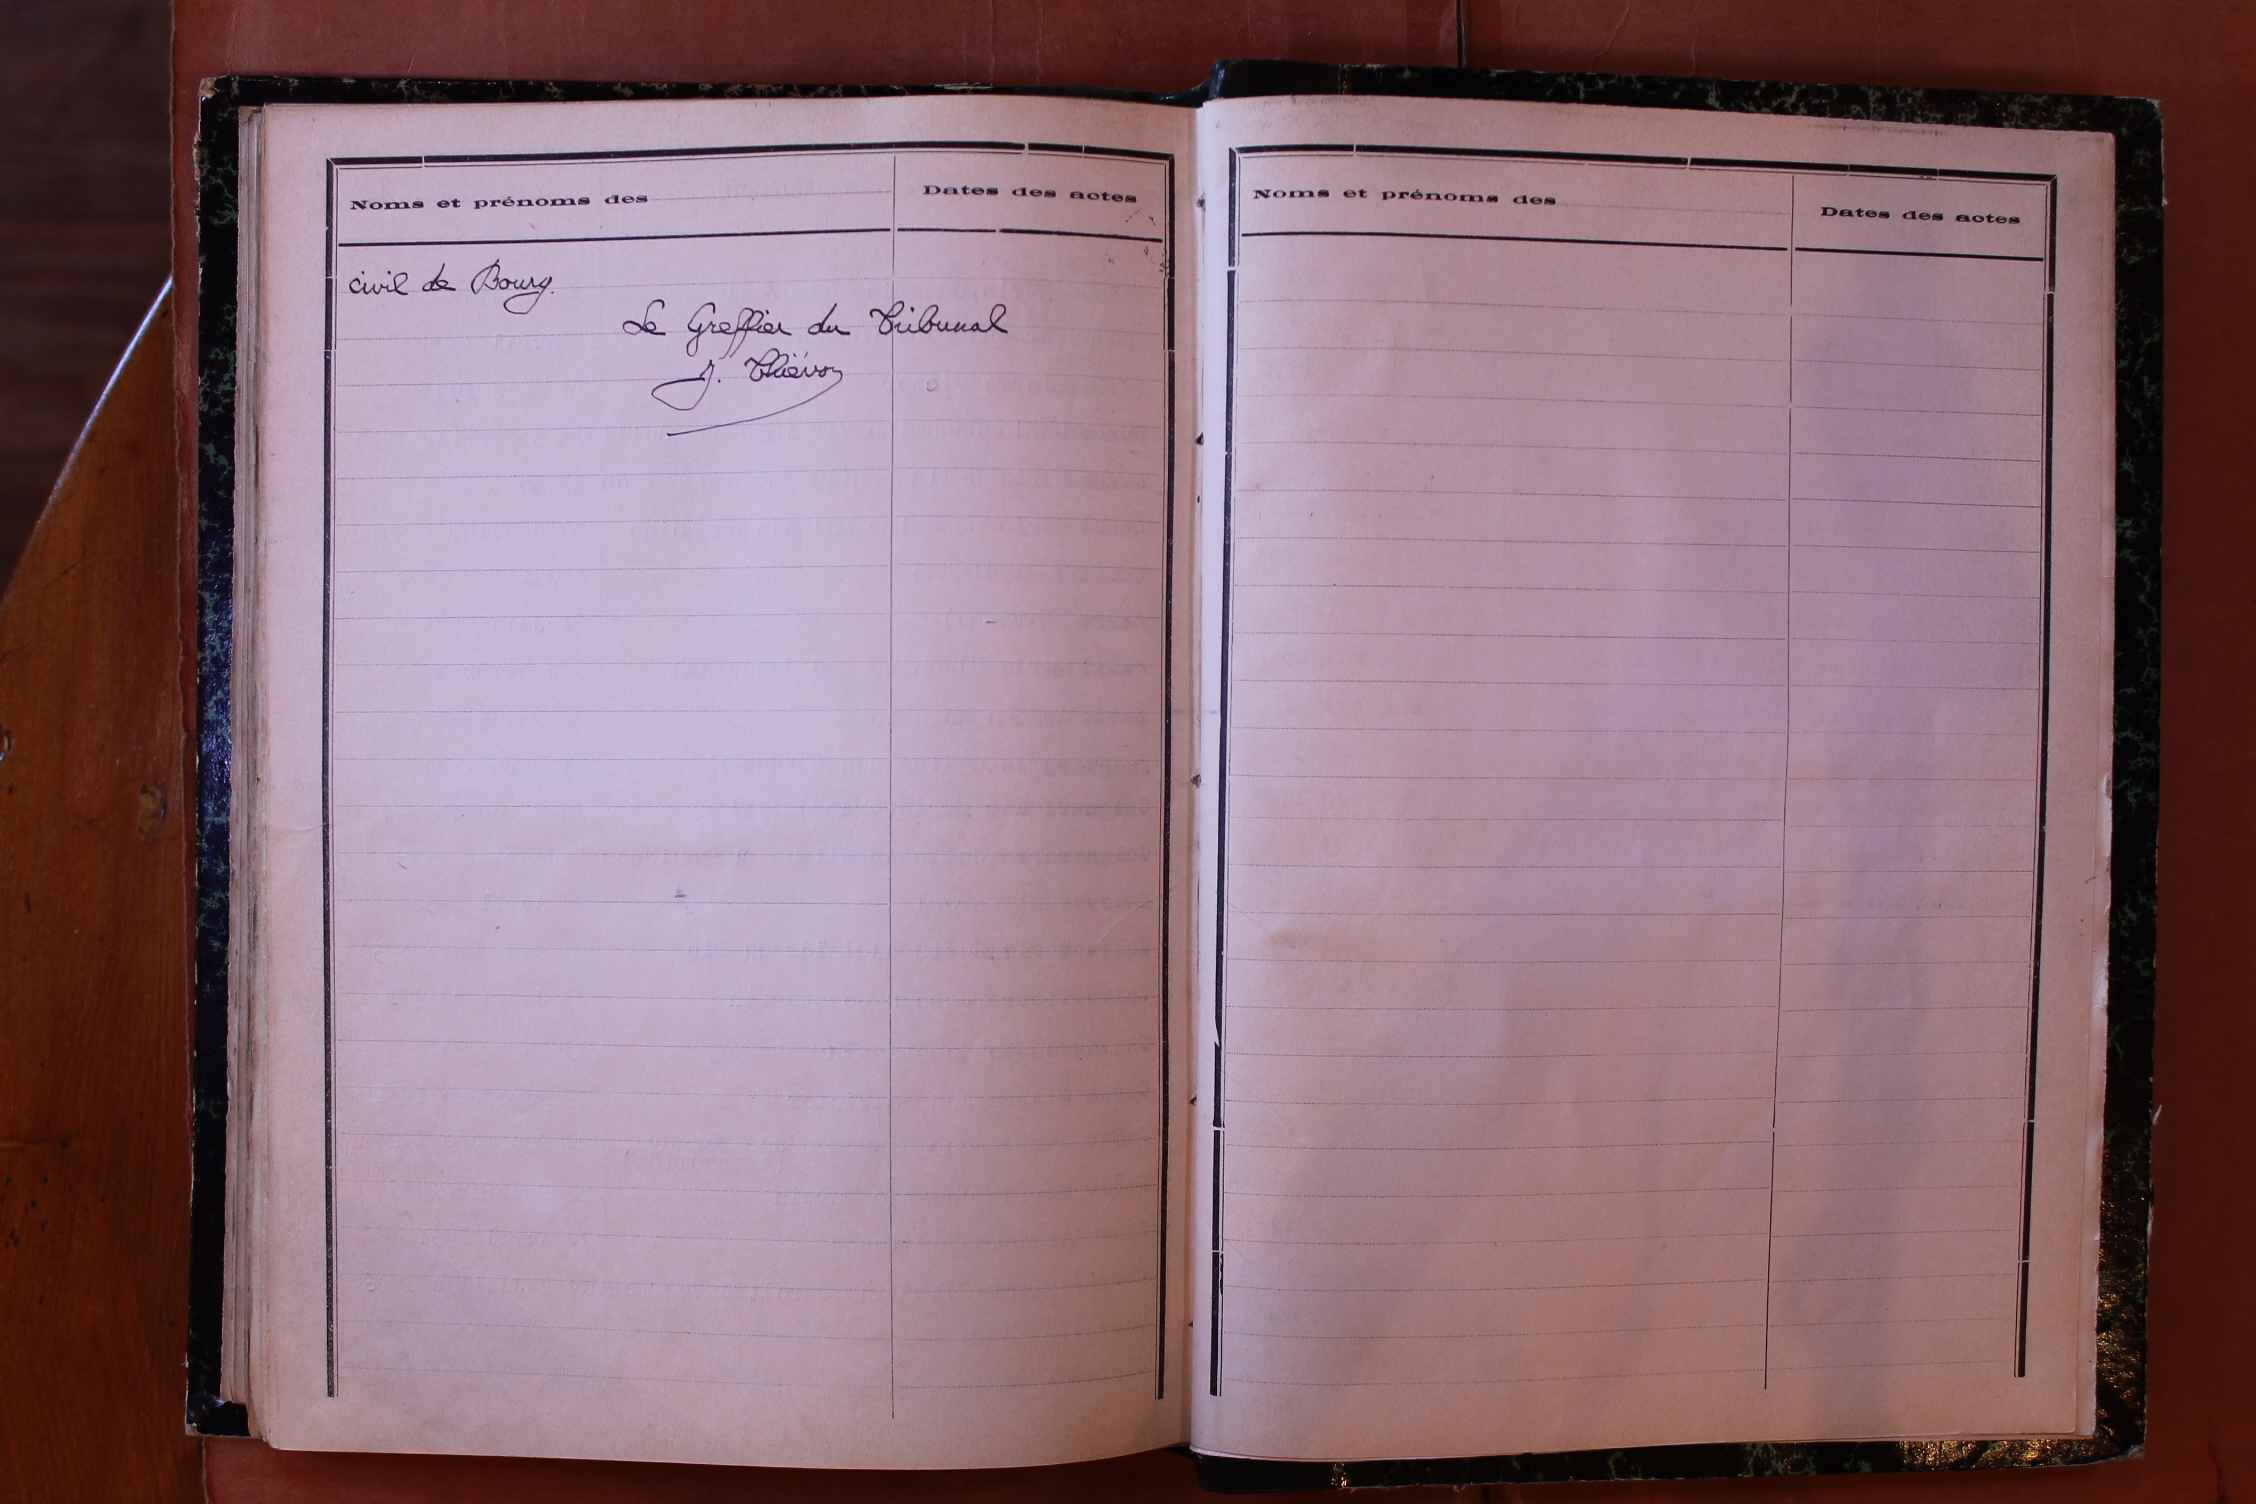 Noms et prénoms des
Dates des actes
civil de Bourg.
Le Greffier du Tribunal
J. Thiévon
Noms et prénoms des
Dates des actes